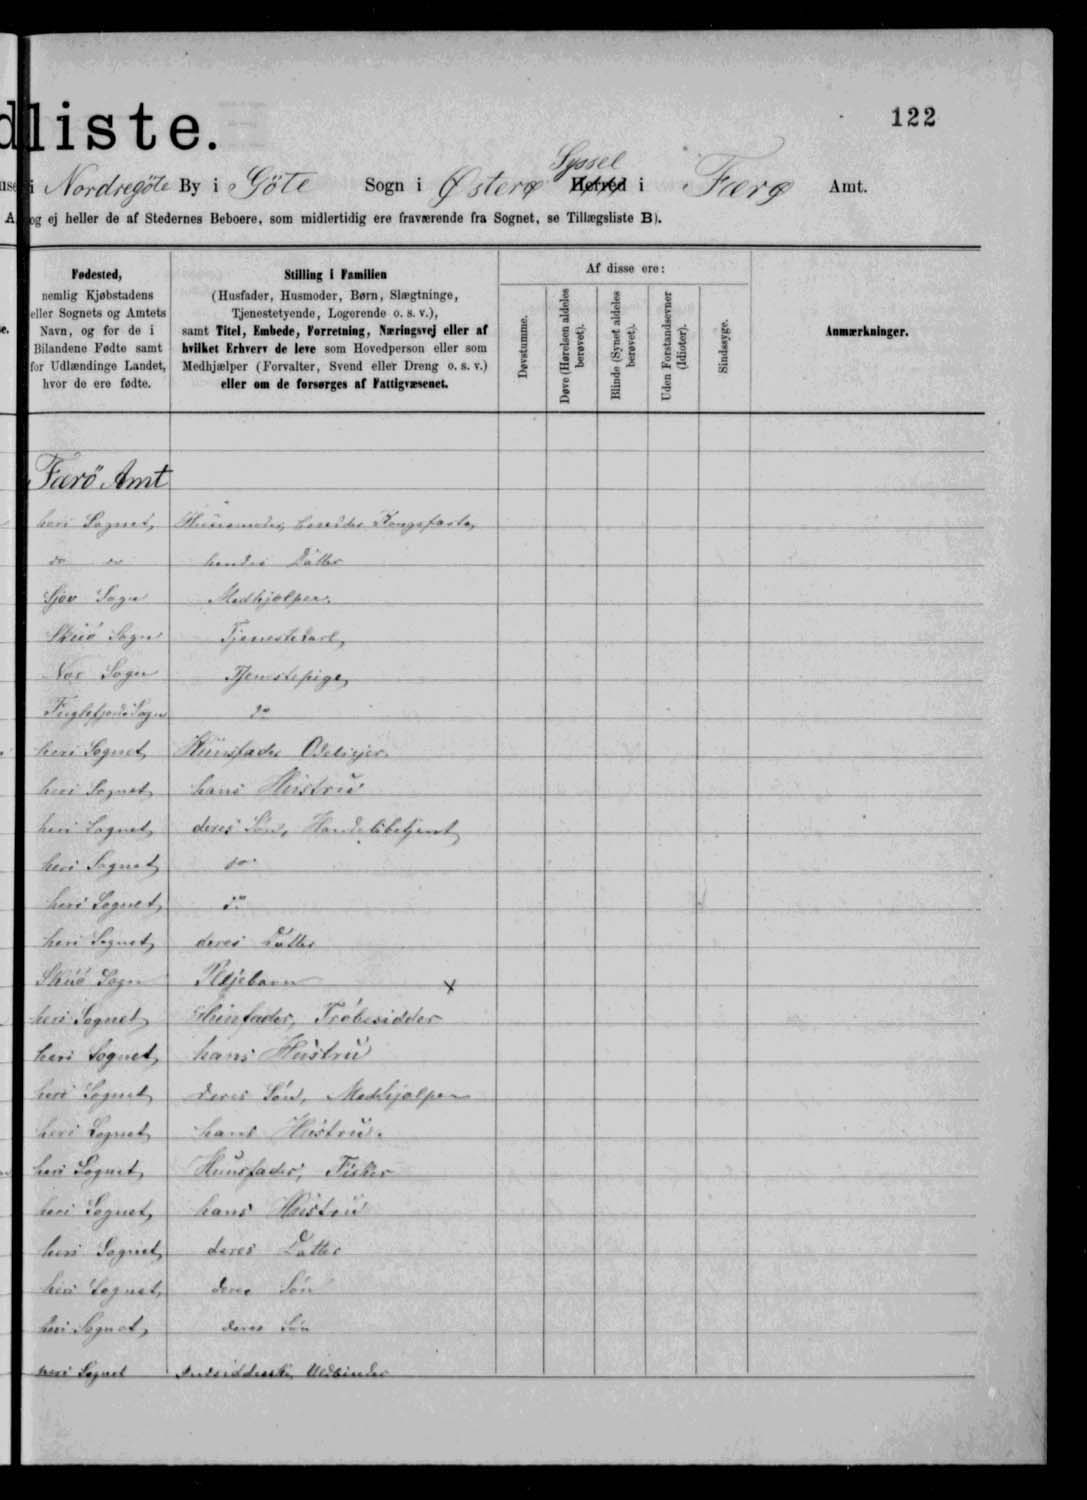 dliste.
122
Syssel
i Nordregöte By i Göte Sogn i Østerø Herred i Færø Amt.
A og ej heller de af Stedernes Beboere, som midlertidig ere fraværende fra Sognet, se Tillægsliste B).
Fødested,
nemlig Kjøbstadens
eller Sognets og Amtets
Navn, og for de i
Bilandene Fødte samt
for Udlændinge Landet,
hvor de ere fødte.
Stilling i Familien
(Husfader, Husmoder, Børn, Slægtninge,
Tjenestetyende, Logerende o. s. v.),
samt Titel, Embede, Forretning, Næringsvej eller af
hvilket Erhverv de leve som Hovedperson eller som
Medhjælper (Forvalter, Svend eller Dreng o. s. v.)
eller om de forsørges af Fattigvæsenet.
Af disse ere:
Døvstumme.
Døve (Hørelsen aldeles
berøvet).
Blinde (Synet aldeles
berøvet).
Uden Forstandsevner
(Idioter).
Sindssyge.
Anmærkninger.
Færö Amt
heri Sognet, Huusmoder, besidder Kongsfæste,
do do hendes Datter
Sjov Sogn Medhjælper.
Skuö Sogn Tjenestekarl,
Næs Sogn Tjenstepige,
Fuglefjords Sogn do
heri Sognet, Huusfader Odelsejer
heri Sognet, hans Hustru
heri Sognet, deres Søn, Handelsbetjent
heri Sognet, do
heri Sognet, do
heri Sognet, deres Datter
Skuö Sogn Plejebarn x
heri Sognet, Huusfader,
heri Sognet, hans Hustru
heri Sognet, deres Sön, Medhjælper
heri Sognet, hans Hustru.
heri Sognet, Huusfader, Fisker
heri Sognet, hans Hustru
heri Sognet, deres Datter
heri Sognet, deres Sön
heri Sognet, deres Sön
heri Sognet